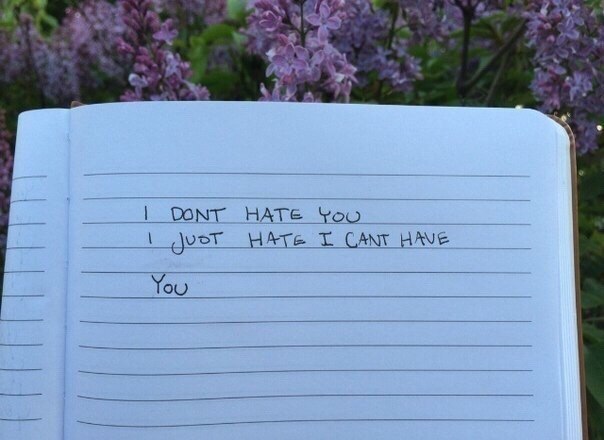 I DONT HATE YOU
I JUST HATE I CANT HAVE
YOU